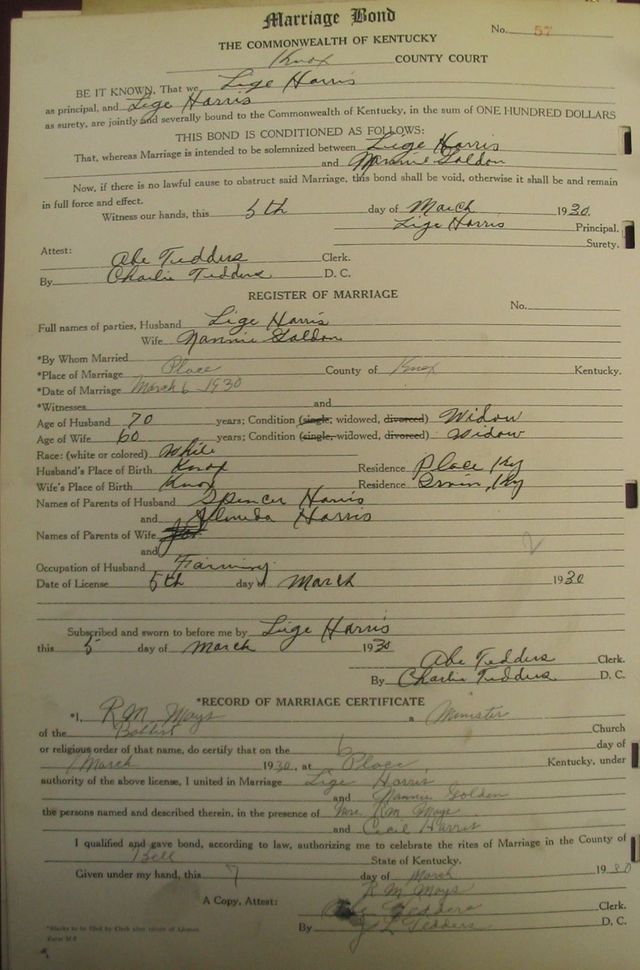 Marriage Bond
No. 57
THE COMMONWEALTH OF KENTUCKY
Knox COUNTY COURT
BE IT KNOWN, That we Lige Harris
as principal, and Lige Harris
as surety, are jointly and severally bound to the Commonwealth of Kentucky, in the sum of ONE HUNDRED DOLLARS
THIS BOND IS CONDITIONED AS FOLLOWS:
That, whereas Marriage is intended to be solemnized between Lige Harris
and Nannie Goldon
Now, if there is no lawful cause to obstruct said Marriage, this bond shall be void, otherwise it shall be and remain
in full force and effect.
Witness our hands, this 5th day of March 1930
Lige Harris Principal.
Surety.
Attest:
Abe Tedders Clerk.
By Charlie Tedders D. C.
REGISTER OF MARRIAGE
No.
Full names of parties, Husband Lige Harris
Wife Nannie Goldon
*By Whom Married
*Place of Marriage Place County of Knox Kentucky.
*Date of Marriage March 6 1930
*Witnesses and
Age of Husband 70 years; Condition (single, widowed, divorced) Widow
Age of Wife 60 years; Condition (single, widowed, divorced) Widow
Race: (white or colored) White
Husband's Place of Birth Knox Residence Place Ky
Wife's Place of Birth Knox Residence Ky
Names of Parents of Husband Spencer Harris
and Harris
Names of Parents of Wife
and
Occupation of Husband Farming
Date of License 5th day of March 1930
Subscribed and sworn to before me by Lige Harris
this 5 day of March 1930
Abe Tedders Clerk.
By Charlie Tedders D. C.
*RECORD OF MARRIAGE CERTIFICATE
*I, R M Mays a Minister
of the Babtist Church
or religious order of that name, do certify that on the 6 day of
March 1930, at Place Kentucky, under
authority of the above license, I united in Marriage Lige Harris
and Nannie Golden
the persons named and described therein, in the presence of Mrs. R.M. Mays
and Cecil Harris
I qualified and gave bond, according to law, authorizing me to celebrate the rites of Marriage in the County of
Bell State of Kentucky.
Given under my hand, this 7 day of March 1930
R M Mays
A Copy, Attest: Abe Tedders Clerk.
By Tedders D. C.
*Blanks to be filed by Clerk after return of License